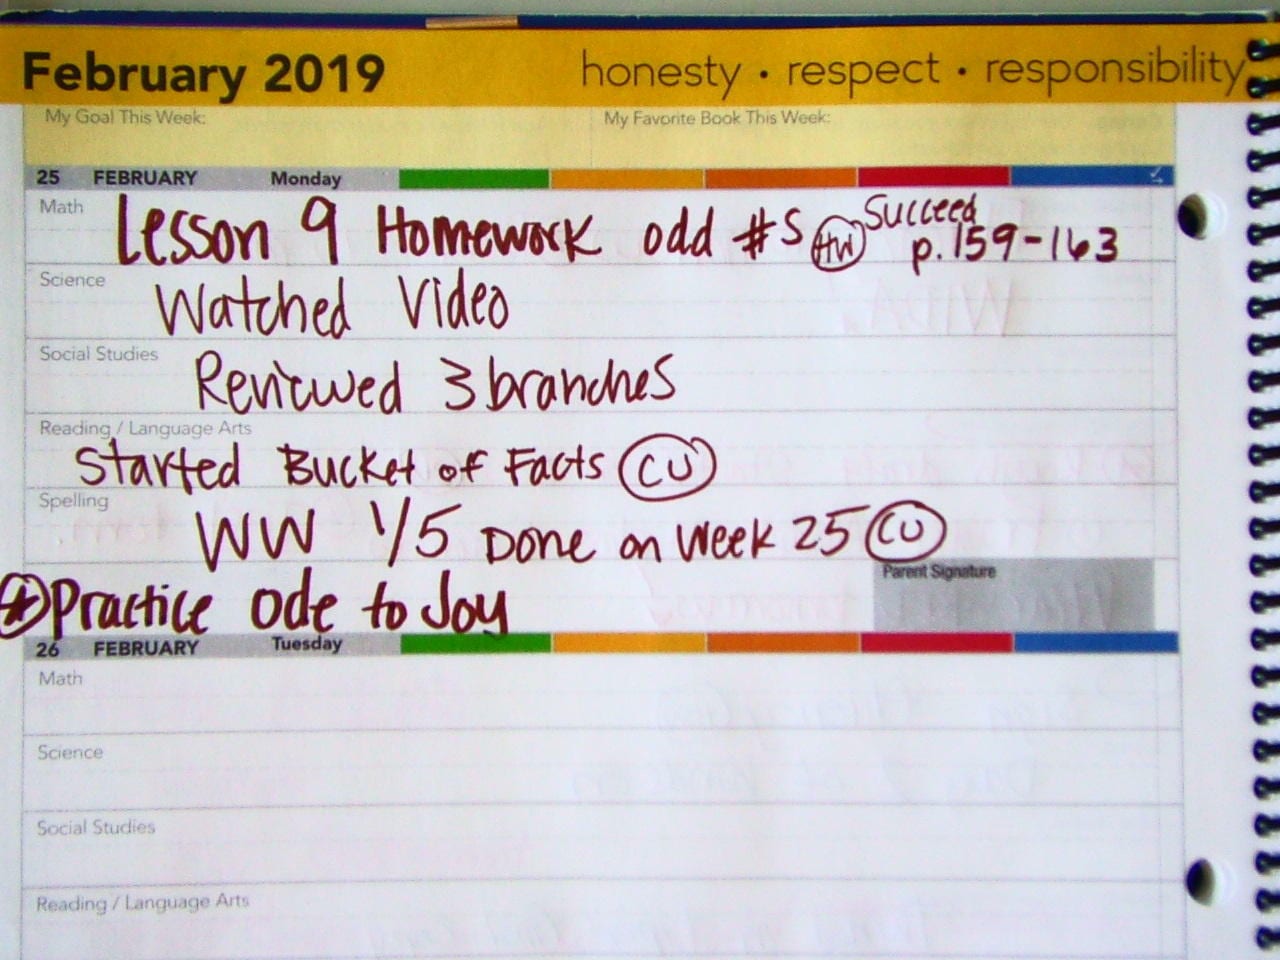 February 2019 honesty • respect • responsibility
My Goal This Week: My Favorite Book This Week:
25 FEBRUARY Monday
Math
Lesson 9 Homework odd #s HW Succeed
p. 159-163
Science
Watched Video
Social Studies
Reviewed 3 branches
Reading / Language Arts
Started Bucket of Facts CU
Spelling
WW 1/5 Done on Week 25 CU
Parent Signature
Practice Ode to Joy
26 FEBRUARY Tuesday
Math
Science
Social Studies
Reading / Language Arts